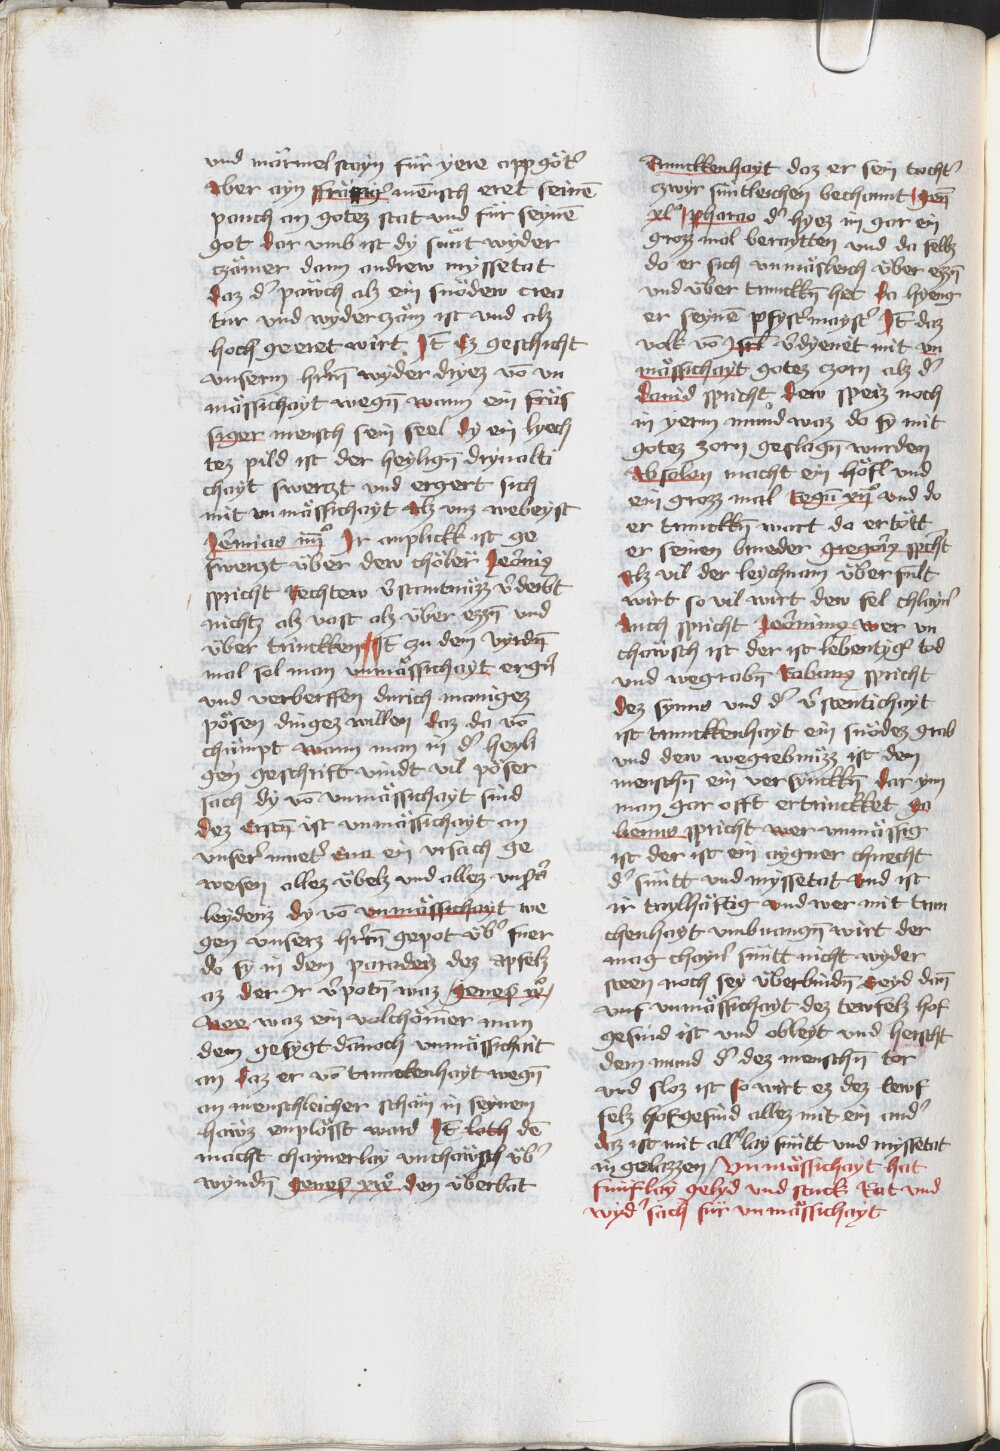 vnd märmelstayn für yere appgötˀ
Aber ayn fräsigˀ mensch eret seinē
pauch an gotez stat vnd für seynē
got Dar vmb ist dy sünt wyder
czämer dann andrew myssetat
Daz dˀ pawch alz ein snödew crea
tur vnd wyderczäm ist vnd alz
hoch geeret wirt Jt Ez geschicht
vnserm hˀrn wyder dryez võ vn
mässichayt wegñ wann ein fräs
siger mensch sein seel Dy ein lyech
tez pild ist der heyligñ dryualti
chayt swerczt vnd ergert sich
mit vnmässichayt Alz vnz webeyst
Jeˀmias iiijº Jr anplickk ist ge
swerczt über dew cholër Jeoīg
spricht Rechtew vˀstantnüzz vˀderbt
nichtz alz vast alz über ezzñ vnd
über trinckken Jt zu dem vyrdñ
mal sol man vnmässichayt ergˀn
vnd verberffen durich manigez
pösen dingez willen Daz da võ
chümpt wann man in dˀ heyli
gen geschrift vindt vil pöser
sach dy võ vnmässichayt sind
Dez Erstñ ist vnmässichayt an
vnserˀ muetˀ Eua ein vrsach ge
wesen allez übelz vnd allez
leydenz dy võ vnmässichayt we
gen vnserz hˀrñ gepot übˀ fuer
do sy in dem paradeiz dez Apfelz
az Der Jr vˀpotñ waz
Noe waz ein volchomer man
dem gesygt dānoch vnmässichait
an Daz er võ trunckenhayt wegñ
an menschleicher scham in seynem
hawz enplösst ward Jt loth dē
macht chaynerlay vnchawsch übˀ
wyndñ Geneſ xixº Den überbat
Trunckkenhayt daz er sein tochtˀ
czwir süntleichen bechannt Geñ
xlº Pharao dˀ hyez in gar ein
grozz mal beraytten vnd da selbz
do er sich vnmäsleich über ezzñ
vnd über trunckkñ het Da hyeng
er seynē pfystˀmaystˀ Jt daz
volk võ Jsrl vˀdyenet mit vn
mässichayt gotez czorn alz dˀ
Dauid spricht Dew speiz noch
in yerm mund waz do sy mit
gotez zorn geslagñ wurden
Absolon macht ein höfl vnd
ein grozz mal Regū xiijº vnd do
er trunckkñ wart da ertött
er seinen brueder Gregoˀry spˀcht
Alz vil der leychnam überfult
wirt so vil wirt dew sel chlaynˀ
Auch spricht Jeronimo wer vn
chäwsch ist der ist lebentygˀ tod
vnd wegrabñ Rabang spricht
Dez synns vnd dˀ vˀstentichayt
ist trunckkenhayt ein snödez grab
vnd dew wegrebnüzz ist dem
menschñ ein versynckkñ Dar ynn
man gar offt ertrinckket Ga
lienus spricht wer vnmässig
ist der ist ein aygner chnecht
dˀ sünt vnd myssetat vnd ist
ir taylhäftig vnd wer mit trun
chenhayt vmbuangñ wirt der
mag chaynˀ sünt nicht wyder
steen noch sey überbindñ Seyd dañ
auf vnmässichayt dez tewfelz hof
gesind ist vnd obleyt vnd herscht
dem mund dˀ dez menschñ tor
vnd sloz ist So wirt ez dez tewf
felz hofgesind allez mit ein andˀ
Daz ist mit allˀlay sünt vnd myssetat
in gelazzen Vnmässichayt hat
fünflay gelyd vnd stuck Rat vnd
wydˀ sach für vnmässichayt